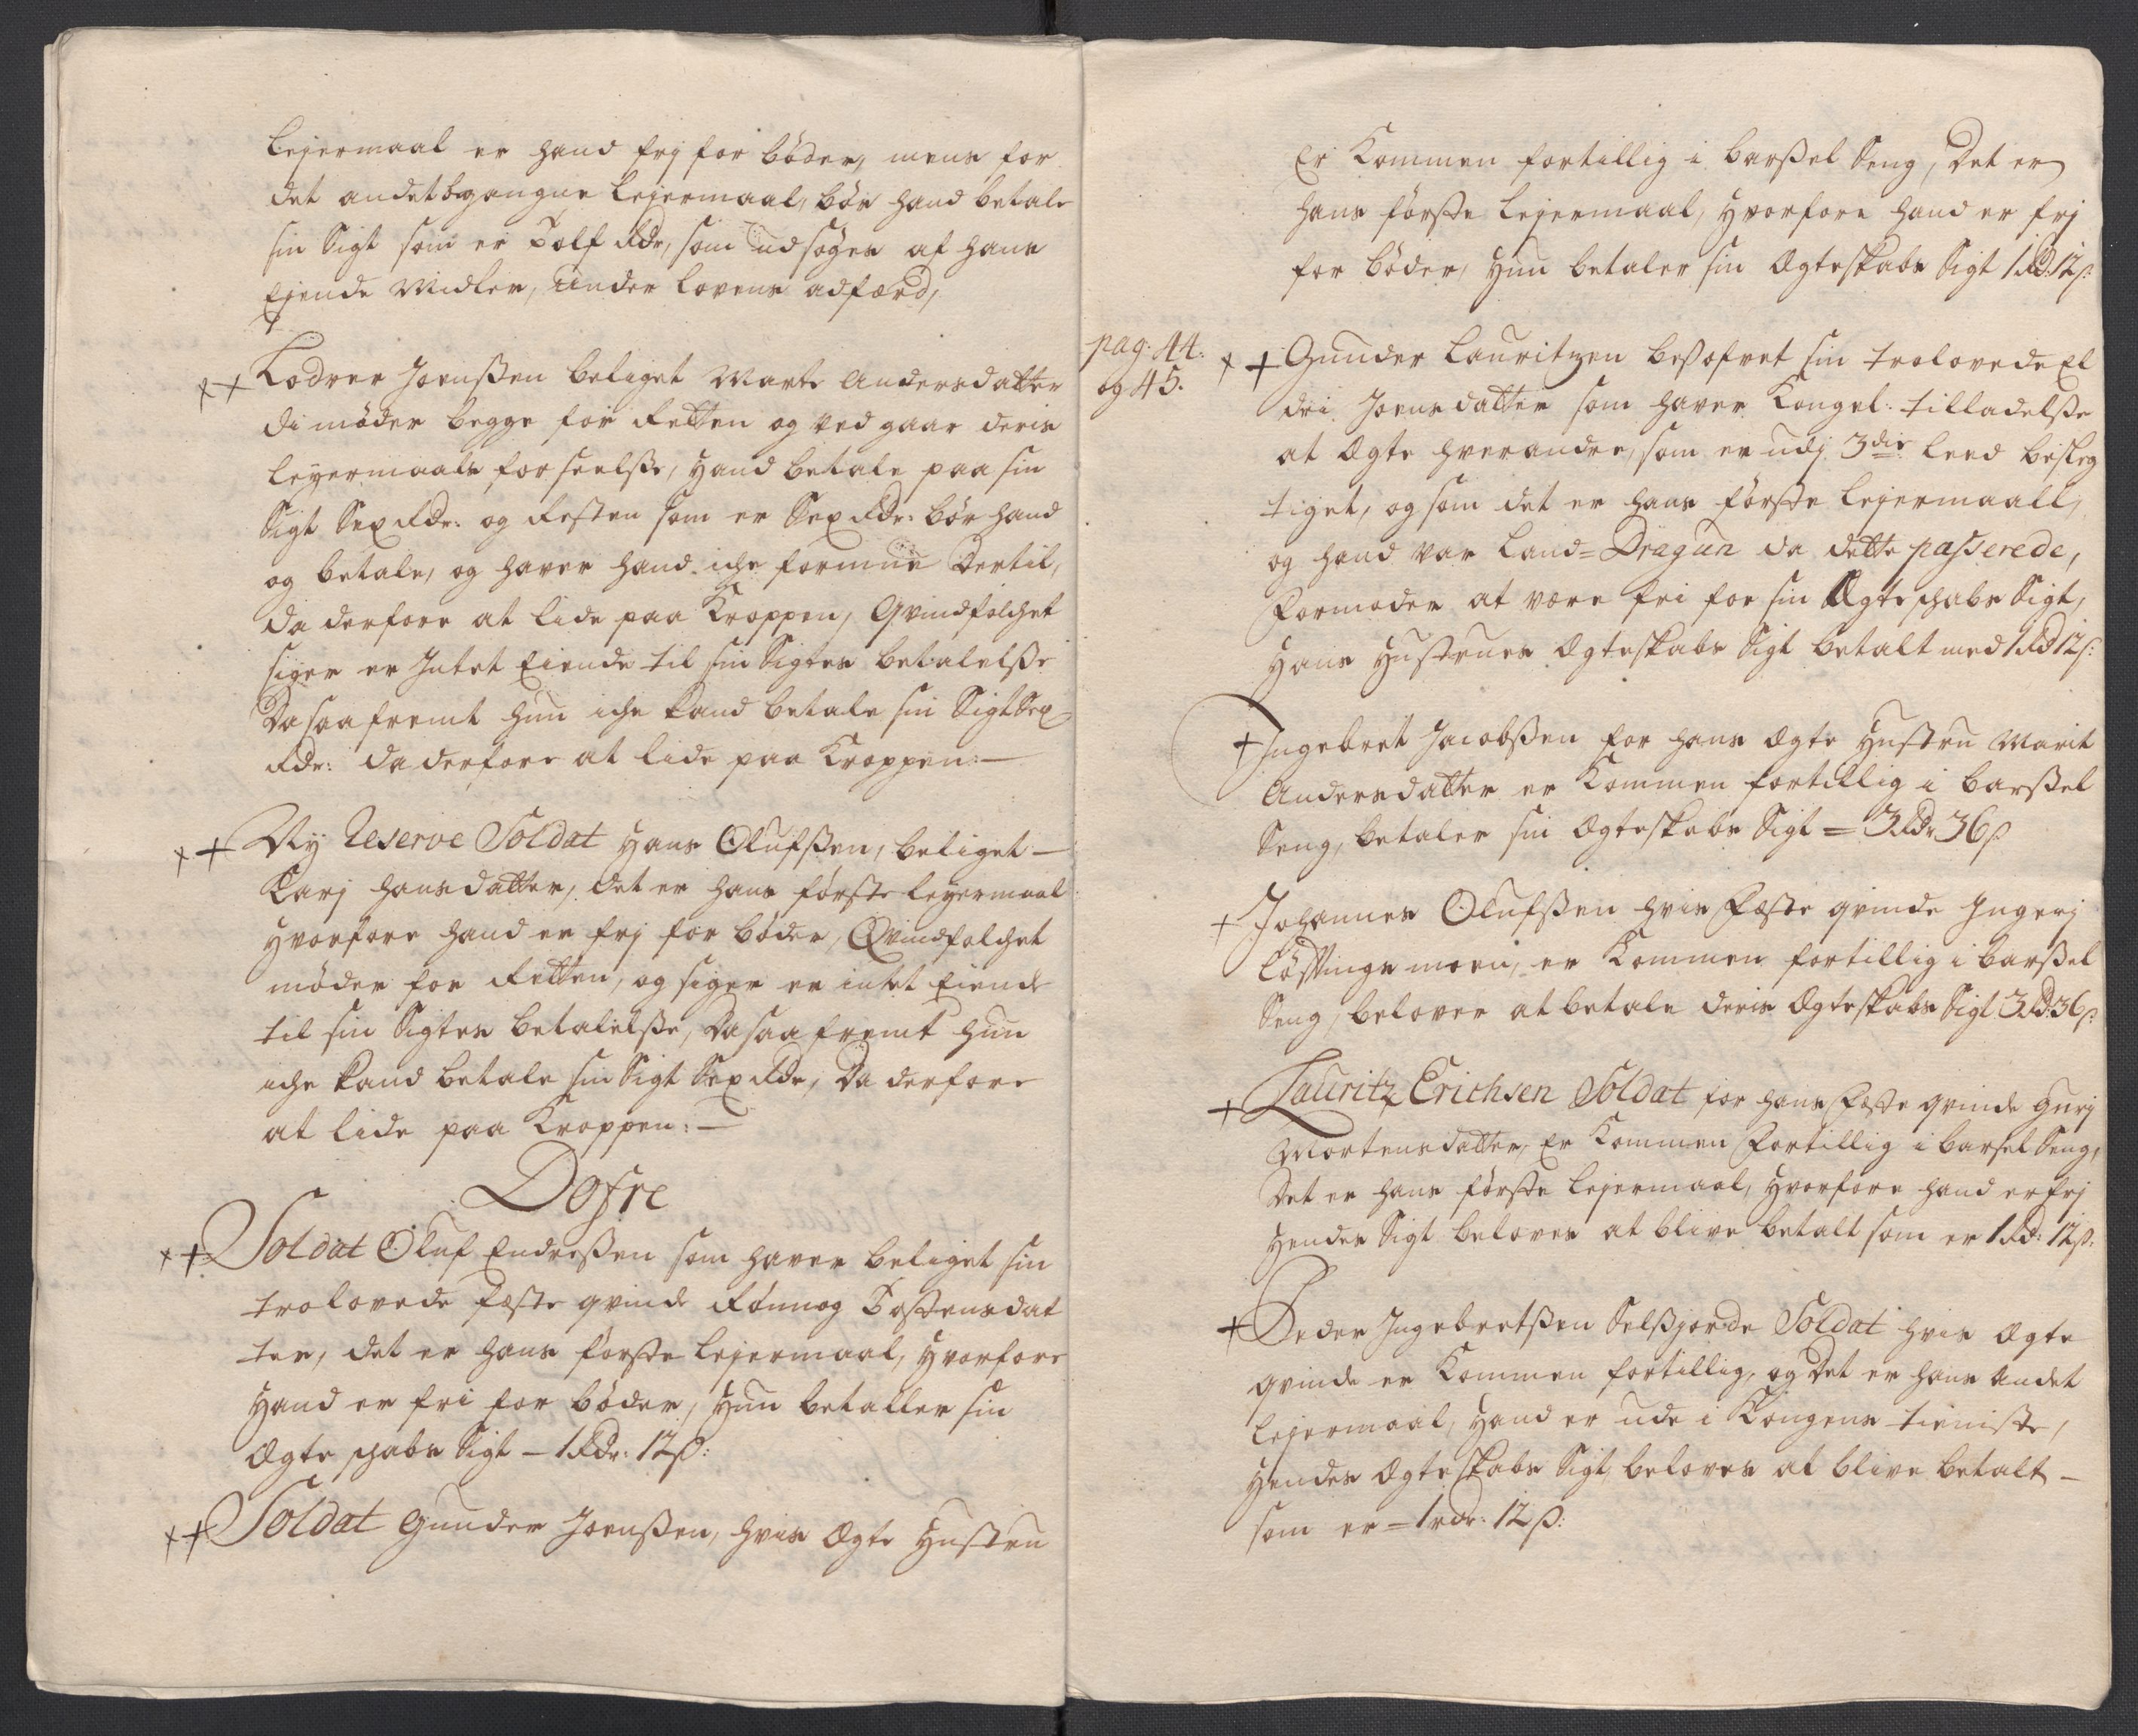 Lejermaal er hand frj for böder, mens for
det andet begangne Lejermaal, bör hand betale
sin Sigt som er Tolf Rdr, som udsöges af hans
Ejende Midler, under Lovens adfærd,
++ Lodver Joenßen beliget Marte Andersdatter
di möder begge for Retten og ved gaar deris
Leyermaals forseelße, Hand betale paa sin
Sigt Sex Rdr: og Resten som er Sex Rdr: bör hand
og betale, og haver hand iche formue dertil,
da derfore at lide paa Kroppen, Qvindfolchet
siger er Intet Eiende til sin Sigtes betalelße
Da saa fremt hun iche kand betale sin Sigt Sex
Rdr: da derfore at lide paa Kroppen:—
++ Ny Reserve Soldat Hans Olufßen, beliget —
Karj Hansdatter, det er hans förste Leyermaal
Hvorfore hand er frj for böder, Qvindfolchet
möder for Retten, og siger er intet Eiende
til sin Sigtes betalelße, Da saa fremt hun
iche kand betale sin Sigt Sex Rdr, Da derfore
at lide paa Kroppen: —
Dofre
++ Soldat Oluf Endreßen som haver beliget sin
trolovede fæste qvinde Rönnog Tostensdat
ter, det er hans förste Lejermaal, Hvorfore
Hand er fri for böder, Hun betaller sin
Ægte schabs Sigt – 1 Rdr: 12 ß:
++ Soldat Gunder Joenßen, hvis Ægte Hustru
Er Kommen fortillig i barßel Seng, Det er
hans förste Lejermaal, Hvorfore hand er frj
for böder, Hun betaler sin Ægteskabs Sigt 1 Rd 12 ß:
pag: 44:
og 45.
++ Gunder Lauritzen besofvet sin trolovede El
dri Joensdatter som haver Kongel: tilladelße
at Ægte hverandre, som er udj 3die Leed besleg
tiget, og som det er hans förste Lejermaall,
og hand var Land=Dragun da dette passerede,
Formoder at være fri for sin Ægteschabs Sigt,
Hans Hustrues Ægteskabs Sigt betalt med 1 Rd 12 ß:
+ Ingebret Jacobßen for hans Ægte Hustru Marit
Andersdatter er Kommen fortillig i barßel
Seng, betaler sin Ægteskabs Sigt = 3 Rdr 36 ß
+ Johannes Olufßen hvis Fæste qvinde Ingerj
er Kommen fortillig i barßel
Seng, belover at betale deris Ægteskabs Sigt 3 Rd: 36 ß:
+ Lauritz Erichsen Soldat for hans Fæste qvinde Gurj
Mortensdatter, Er Kommen Fortillig i barsel Seng,
Det er hans förste Lejermaal, Hvorfore hand er frj
Hendes Sigt beloves at blive betalt som er 1 Rd: 12 ß:
+ Peder Ingebretßen Selßjorde Soldat hvis Ægte
qvinde er Kommen fortillig, og Det er hans Andet
Lejermaal, Hand er ude i Kongens tieniste,
Hendes Ægteskabs Sigt, beloves at blive betalt –
som er = 1 rdr: 12 ß: